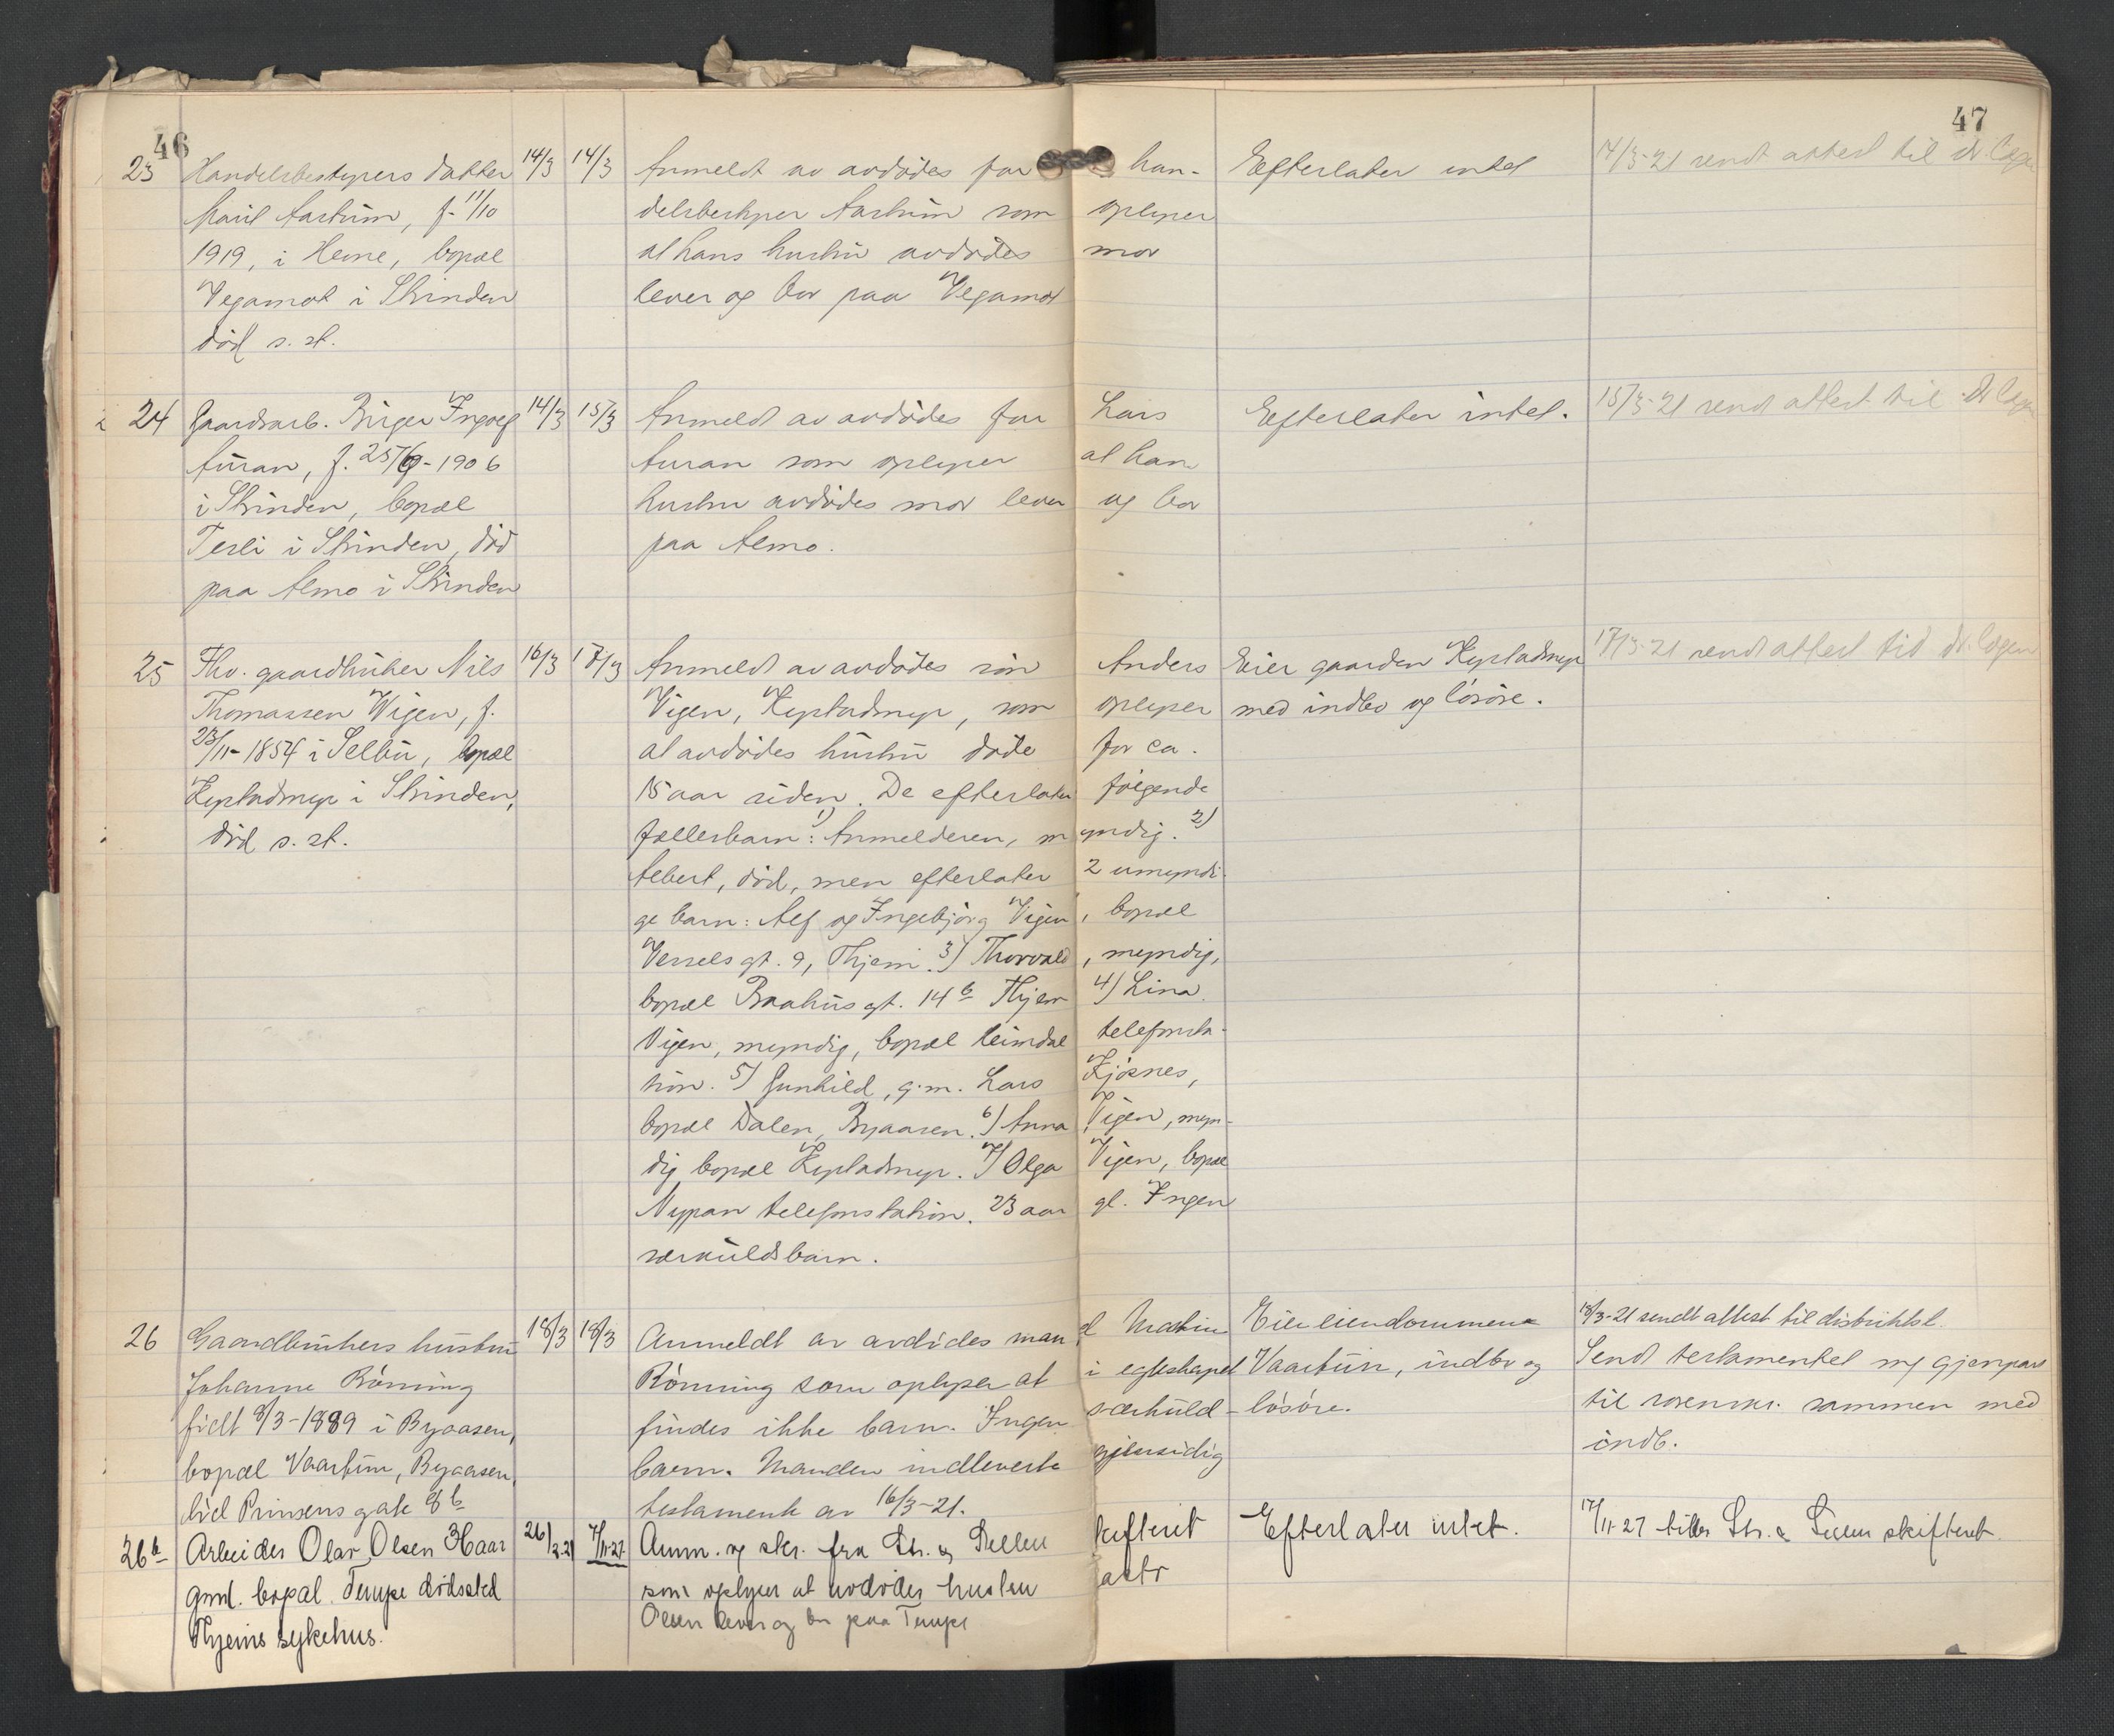 46
47
23 Handelsbestyrers datter 14/3 14/3 Anmeldt av avdødes far han- Efterlater intet 14/3-21 sendt attest til d.lægen
Marit Aastum, f. 11/10 delsbestyrer Aastum som oplyser
1919, i Hevne, bopæl at hans hustru avdødes mor
Vegamot i Strinden lever og bor paa Vegamot
død s. st.
24 Gaardsarb. Birger Ingolf 14/3 15/3 Anmeldt av avdødes far Lars Efterlater intet. 15/3-21 sendt attest til d.lægen
Auran, f. 25/9-1906 Auran som oplyser at hans
i Strinden, bopæl hustru avdødes mor lever og bor
Tesli i Strinden, død paa Almo.
paa Almo i Strinden
25 Fhv. gaardbruker Nils 16/3 17/3 Anmeldt av avdødes søn Anders Eier gaarden Kystadmyr 17/3-21 sendt attest til d.lægen
Thomassen Wigen, f. Vigen, Kystadmyr, som oplyser med indbo og løsøre.
23/11-1854 i Selbu, bopæl at avdødes hustru døde for ca.
Kystadmyr i Strinden, 15 aar siden. De efterlater følgende
død s. st. fællesbarn: 1) Anmelderen, myndig. 2)
Albert, død, men efterlater 2 umyndi-
ge barn: Alf og Ingebjørg Vigen, bopæl
Vessels gt. 9, Thjem. 3) Thorvald, myndig,
bopæl Baahus gt. 14 b Thjem 4) Lina
Vigen, myndig, bopæl Leindal telefonsta-
tion. 5) Gunhild, g.m. Lars Kjøsnes,
bopæl Dalen, Byaasen. 6) Anna Vigen, myn-
dig, bopæl Kystadmyr. 7) Olga Vigen, bopæl
Nypan telefonstation. 23 aar gl. Ingen
særkuldsbarn.
26 Gaardbrukers hustru 18/3 18/3 Anmeldt av avdødes mand Martin Eier eiendommen 18/3-21 sendt attest til distriktsl.
Johanne Rønning Rønning som oplyser at i egteskapet Vaartun, indbo og Sendt testamentet m/ gjenpart
født 8/3-1889 i Byaasen, findes ikke barn. Ingen særkuld- løsøre. til sorenskr. sammen med
bopæl Vaartun, Byaasen, barn. Manden indleverte gjensidig indb.
død Prinsens gate 8 b testamente av 16/3-21.
26 b Arbeider Olav Olsen Haar 26/2.21 7/11-27 Anm. og skr. fra Str. & Selbu skifteret Efterlater intet. 17/11-27 til Str. & Selbu skifteret
gml. bopæl Tempe dødssted som oplyser at avdødes hustru
Thjems sykehus. Olsen lever og bor paa Tempe